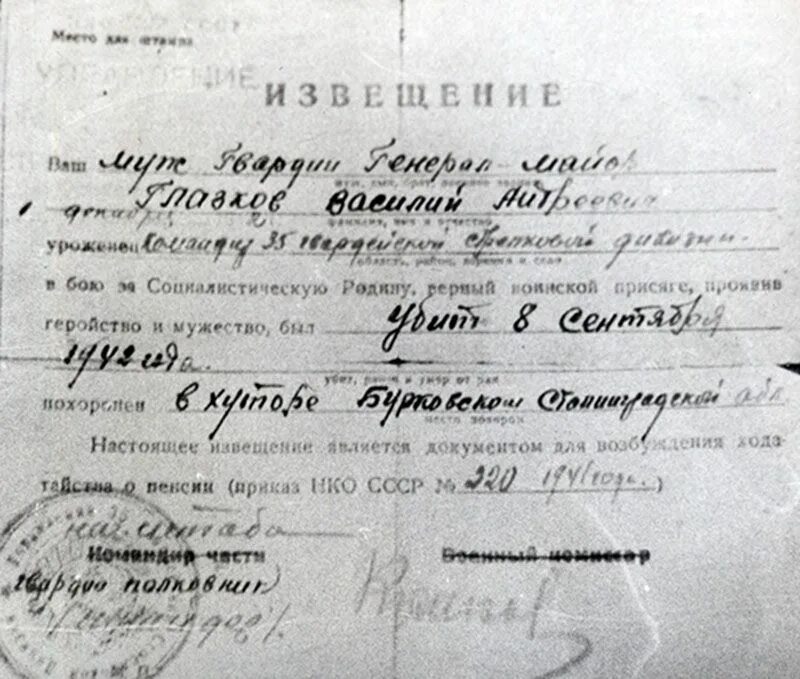 Место для штампа
УПРАВЛЕНИЕ
ИЗВЕЩЕНИЕ
Ваш муж Гвардии Генерал-майор
Глазков Василий Андреевич
фамилия, имя и отчество
уроженец Командир 35 гвардейской стрелковой дивизии
(область, район, деревня и село
в бою за Социалистическую Родину, верный воинской присяге, проявив
геройство и мужество, был Убит 8 Сентября
1942 года.
убит, ранен и умер от ран
похоронен в хуторе Бурковском Сталинградской обл
место похорон
Настоящее извещение является документом для возбуждения хода-
тайства о пенсии (приказ НКО СССР № 220 1941 года.)
нач штаба
Командир части Военный комиссар
гвардии полковник